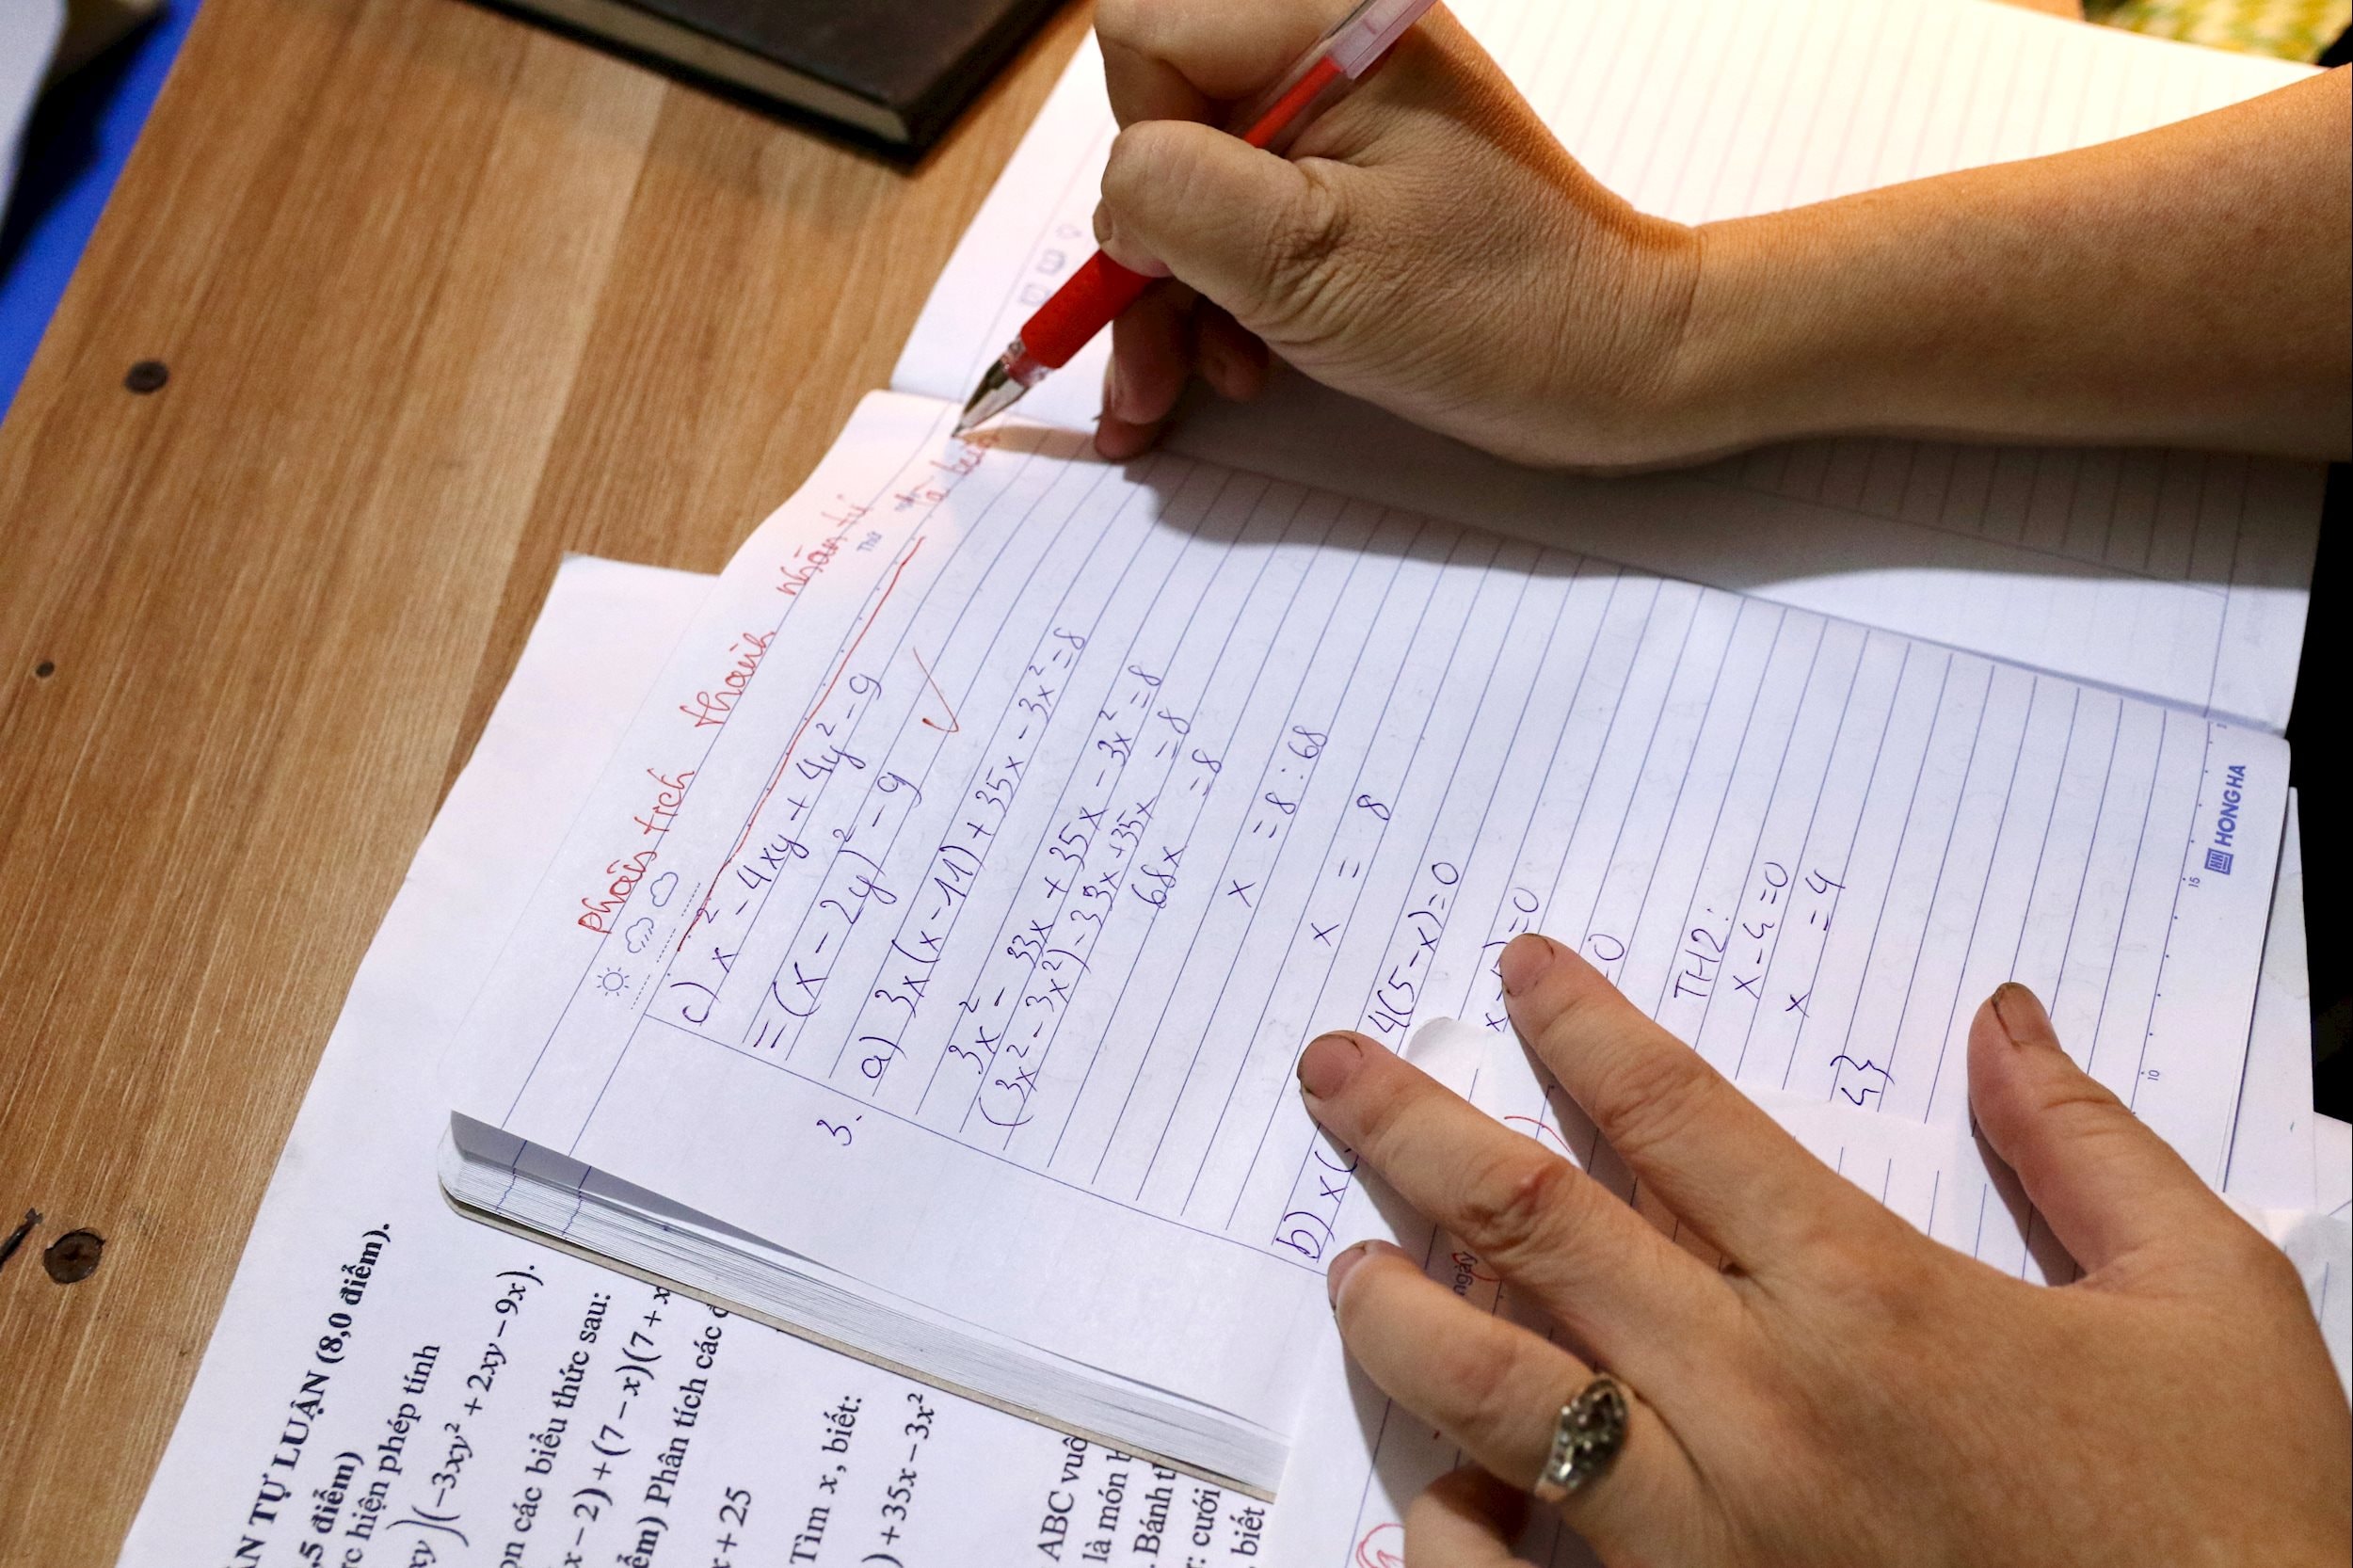 phân tích thành nhân tử
đã biết
Thứ
c) x² - 4xy + 4y² - 9
= (x - 2y)² - 9
3.
a) 3x(x - 11) + 35x - 3x² = 8
3x² - 33x + 35x - 3x² = 8
(3x² - 3x²) - 33x + 35x = 8
68x = 8
x = 8 : 68
x = 8
b) x(
4(5 - x) = 0
= 0
TH2:
x - 4 = 0
x = 4
4}
HONG HA
10
15
ngày
TỰ LUẬN (8,0 điểm).
,5 điểm)
hiện phép tính
xy)(-3xy² + 2xy - 9x).
các biểu thức sau:
x - 2) + (7 - x)(7 + x
Phân tích các
+ 25
Tìm x, biết:
) + 35x - 3x²
ABC
là món
Bánh
cưới
biết